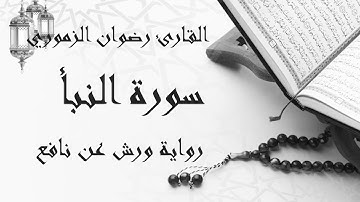 القارئ رضوان الزموري
سورة النبأ
رواية ورش عن نافع